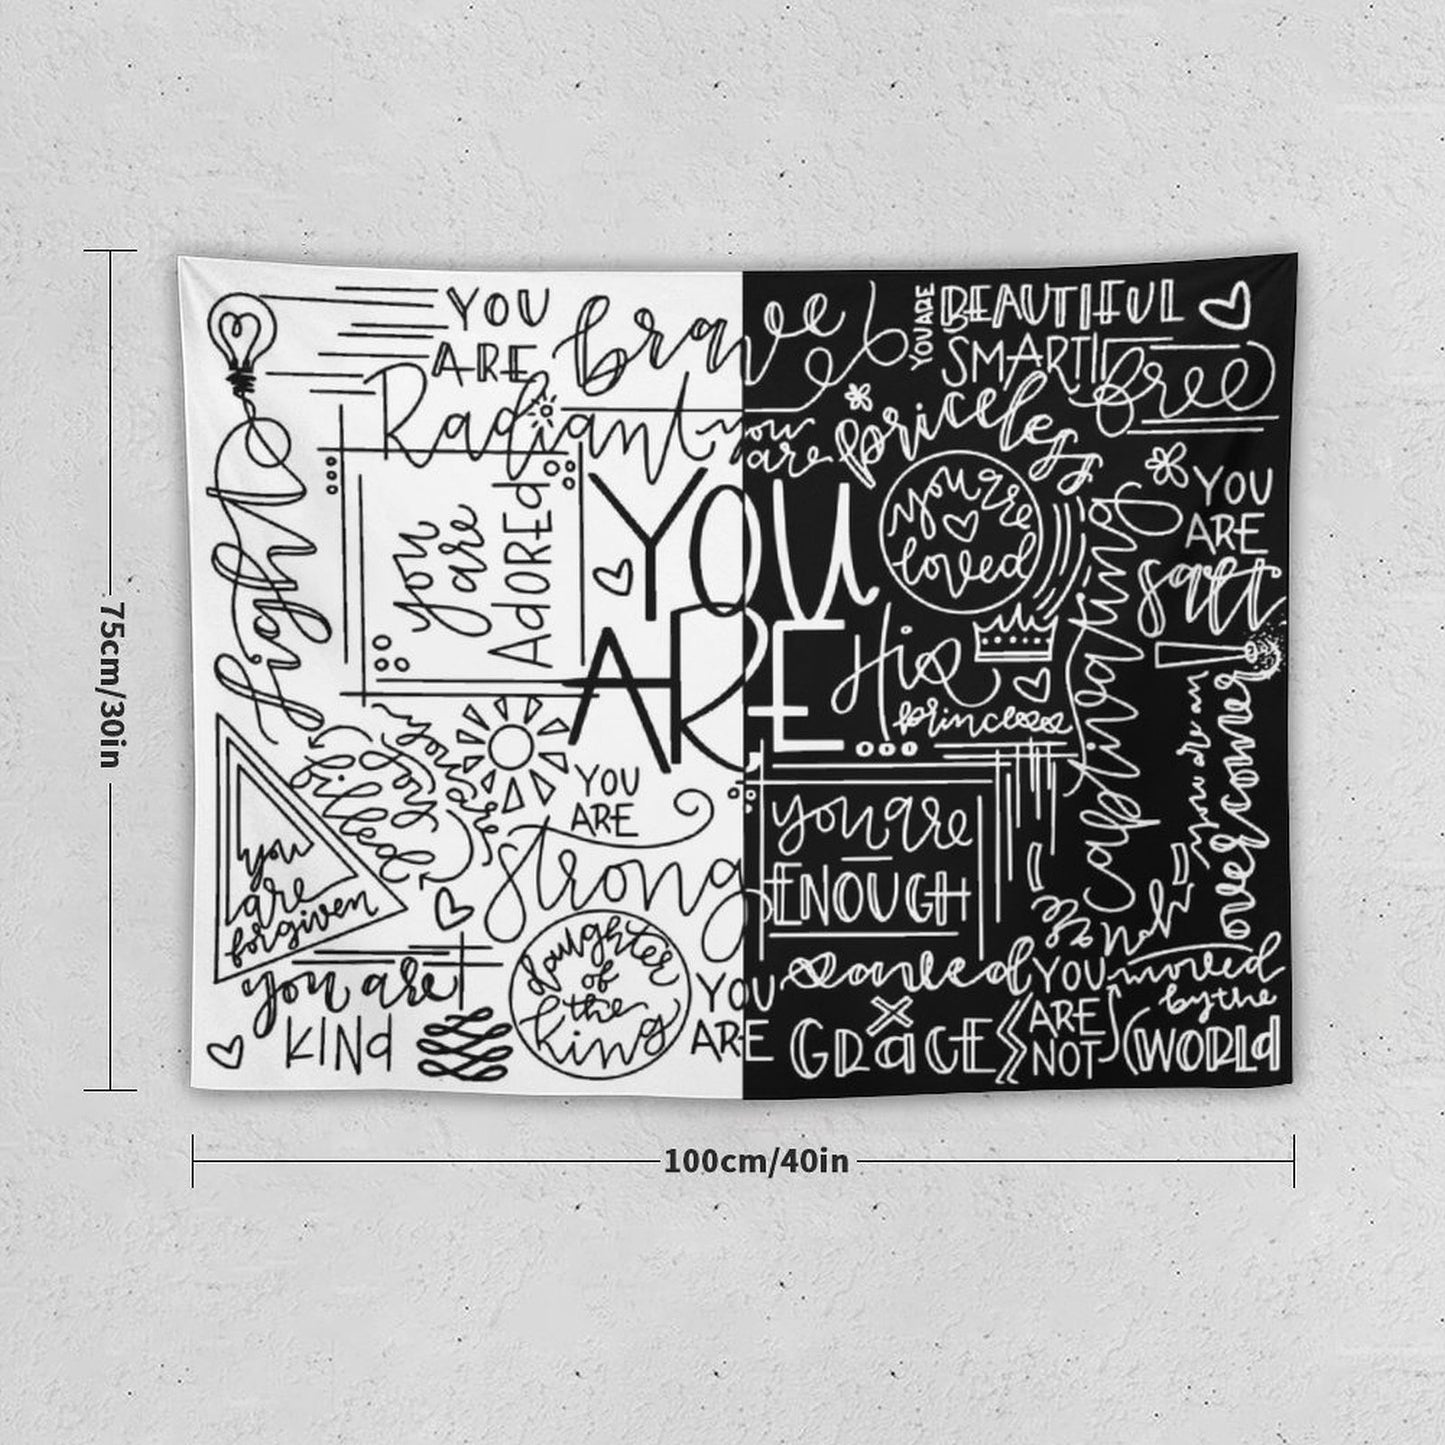 YOU
ARE
brave
Radiant
light
you
are
ADOREd
YOU
ARE
you are
fought
for
you are
filled
YOU
ARE
strong
you
are
forgiven
you are
KINd
daughter
of
the
king
YOU ARE
BEAUTIFUL
SMART
free
you
are
priceless
you're
loved
YOU
ARE
salt
His
princess
captivating
you are an
overcomer
you are
ENOUGH
YOU
ARE
saved
x
GRACE
YOU
ARE
NOT
moved
by the
WORLd
75cm/30in
100cm/40in